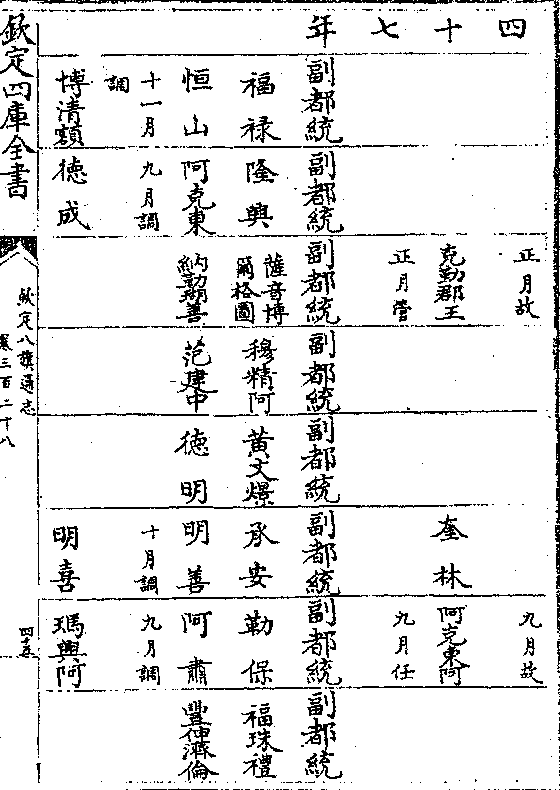 四十七年
正月故 九月故
克勤郡王 奎林 阿克東阿
正月管 九月任
副都統 副都統 副都統 副都統 副都統 副都統 副都統 副都統
福禄 隆興 薩音博爾格圖 穆精阿 黃文 承安 勒保 福珠禮
恒山 阿克東 納勤瑚善 范建中 德明 明善 阿肅 豐伸濟倫
十一月調 九月調 十月調 九月調
博清額 德成 明喜 瑪興阿
欽定四庫全書
欽定八旗通志
卷三百二十八
四十五